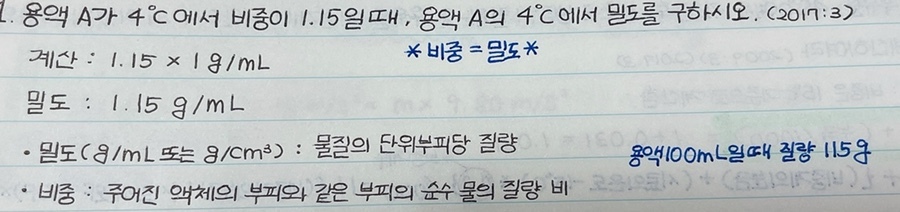 1. 용액 A가 4℃에서 비중이 1.15일때, 용액 A의 4℃에서 밀도를 구하시오. (2017:3)
계산 : 1.15 × 1g/mL *비중=밀도*
밀도 : 1.15 g/mL
• 밀도(g/mL 또는 g/cm³) : 물질의 단위부피당 질량
용액100mL일때 질량 115g
• 비중 : 주어진 액체의 부피와 같은 부피의 순수 물의 질량 비